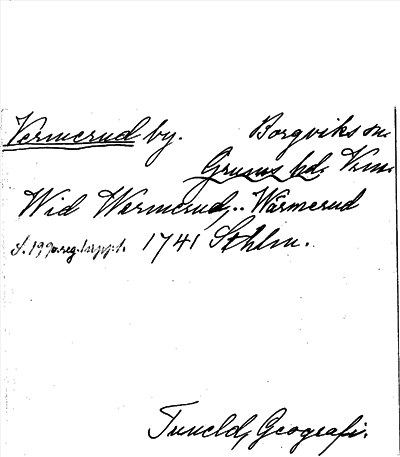 Vermerud by. Borgviks sn.
Grums hd. Vrml.
Wid Wermerud,.. Wärmerud
s. 199. reg. 1741 Sthlm.
Tuneld, Geografi.